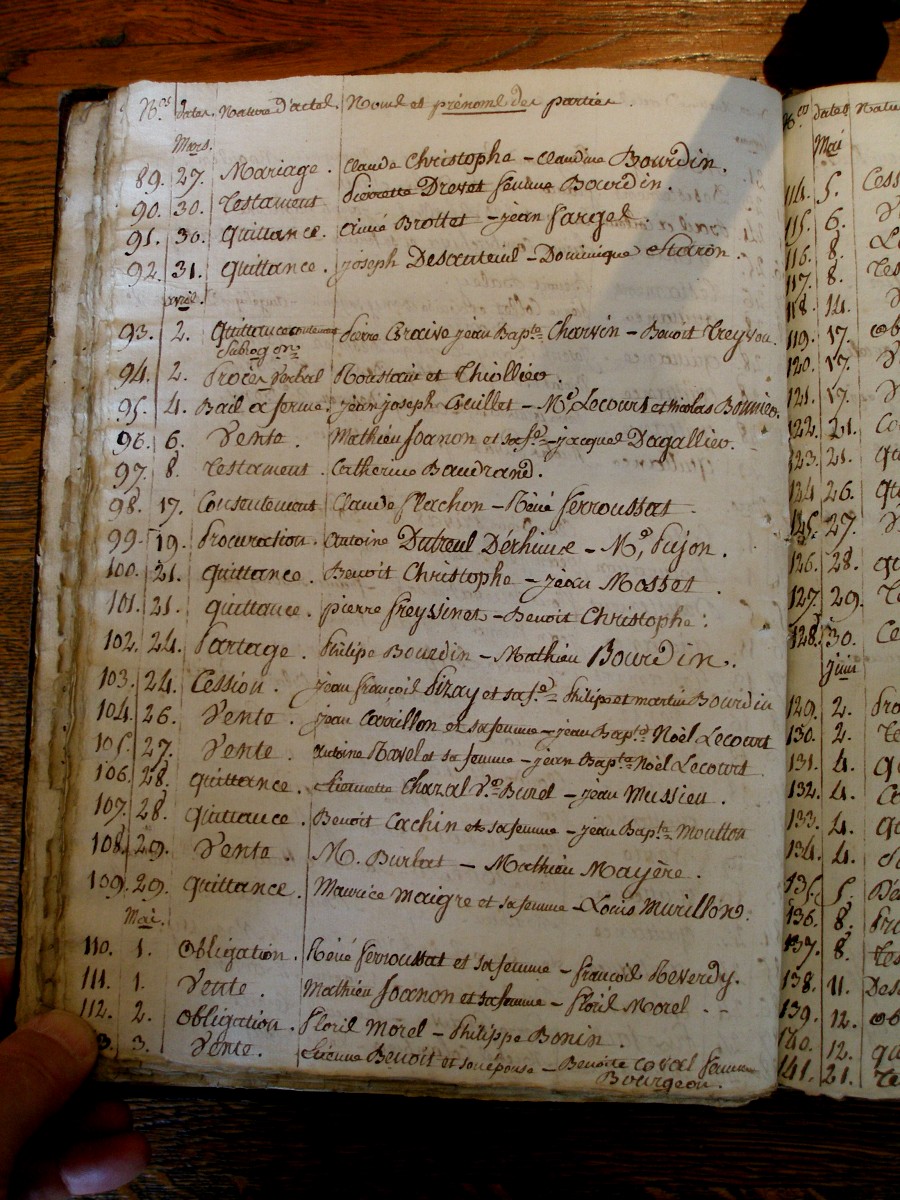 Nos dates. Nature d'actes. Noms et prénoms des parties.
Mars.
89. 27. Mariage. Claude Christophe - Claudine Bourdin.
90. 30. Testament Pierrette Drevet femme Bourdin.
91. 30. quittance. aimé Brottet - jean Farges.
92. 31. quittance. joseph Desauteuil - Dominique Staron.
avril.
93. 2. quittance contenant pierre Graive jean Bapte. Charvin - Benoit Treyvou.
Subrogon
94. 2. Procès verbal Roustain et Thiollier.
95. 4. Bail à ferme. jean joseph Guillet - Mr. Lecourt et nicolas Bonnier.
96. 6. Vente. Mathieu Joanon et sa fe. - jacques Dagallier.
97. 8. Testament. Catherine Baudrand.
98. 17. Consentement Claude Flachon - Réné ferroussat
99. 19. Procuration. antoine Dutreul Dérhime - Mr. Pujon.
100. 21. quittance. Benoit Christophe - jean Mosset
101. 21. quittance. pierre Freyssinet - Benoit Christophe.
102. 24. Partage. Philipe Bourdin - Mathieu Bourdin.
103. 24. Cession. jean françois Sizay et sa fe. - Philipe et martin Bourdin
104. 26. Vente. jean Cavillon et sa femme - jean Bapte. Noël Lecourt
105. 27. Vente. antoine Ravel et sa femme - jean Bapte Noël Lecourt
106. 28. quittance. Etiennette Chazal Ve. Burel - jean Mussieu.
107. 28. quittance. Benoit Cachin et sa femme - jean Bapte. Moulton
108. 29. Vente. M. Burlat - Mathieu Mayère.
109. 29. quittance. Maurice Maigre et sa femme - Louis Murillon.
Mai.
110. 1. Obligation. Réné ferroussat et sa femme - françois Reverdy.
111. 1. Vente. Mathieu Joanon et sa femme - floris Morel
112. 2. Obligation. Floris Morel - Philippe Bonin.
3. 3. Vente. Etienne Benoit et son épouse - Benoite corcel femme
Bourgeon.
Nos dates Natu
Mai
114. 5. Cess
115. 6. V
116. 8.
117. 8. Tes
118. 14.
119. 17. Ob
120. 17. V
121. 17. V
122. 21. Co
123. 21. qu
124. 26. qu
125. 27. V
126. 28. qu
127. 29.
128. 30. Ce
juin
129. 2. Pro
130. 2. Te
131. 4. qu
132. 4.
133. 4. qu
134. 4.
135. 5. Dé
136. 8. Pro
137. 8. Tes
138. 11. Des
139. 12. Ob
140. 12. qu
141. 21. Te